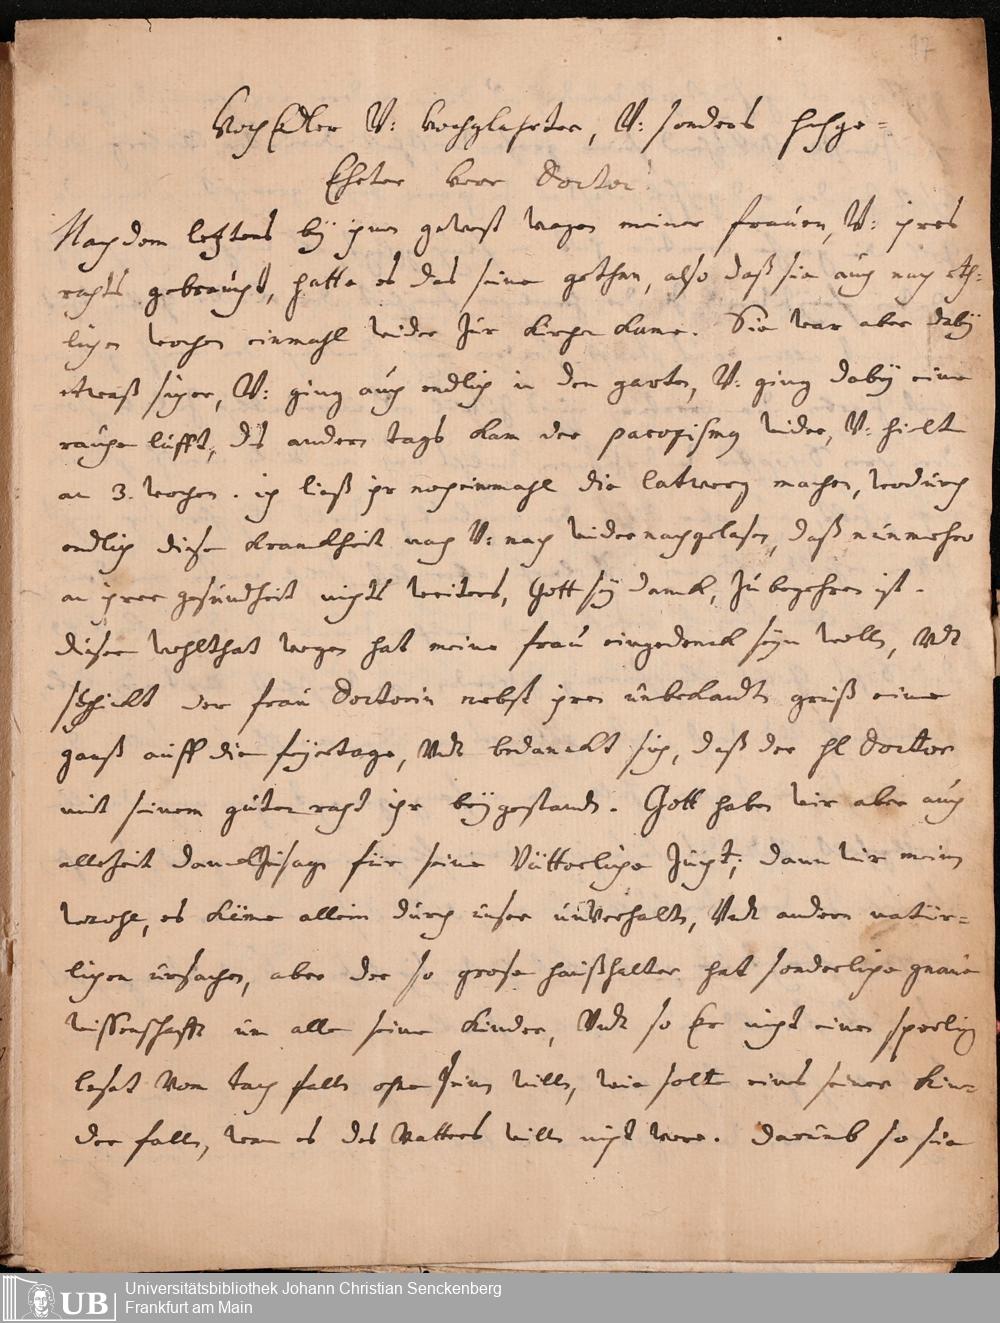 17
HochEdler V: Hochglahrter, V: sonders hochge=
Ehrter Herr Doctor!
Nachdem letztens bey ihnen gewest wegen meiner frauen, V: ihres
rahts gebraucht, hatte es das seine gethan, also daß sie auch nach etl=
lichen wochen einmahl wider zur Kirchen kame. Sie war aber dabey
etwaß sicher, V: ging auch endlich in den garten, V: ging dabey eine
rauhe lufft, des andern tags kam der paroxismg wider, V: hielt
an 3. wochen. ich ließ ihr nocheinmahl die latwerg machen, wodurch
endlich diese kranckheit nach V: nach wider nachgelasen, daß nunmehro
an ihrer gesundheit nichts weiters, Gott sey danck, zu begehren ist.
dieser wohlthat wegen hat meine frau eingedenck seyn wolln, Vndt
schickt der frau Doctorin nebst ihren unbekandten gruß eine
ganß auff die feyertage, Vndt bedanckt sich, daß der hl Doctor
mit seinem guten raht ihr beygestanden. Gott haben wir aber auch
allezeit danckzusagen für seine Vätterliche Zucht; dann wir meinen
wohl, es käme allein durch unser unverhalten, Vndt andern natür=
lichen ursachen, aber der so grose haußhalter hat sonderliche gnaue
wissenschafft um alle seine kinder, Vndt so Er nicht einen sperling
lesat vom tach falln ohne seinen willn, wie solt eines seiner kin=
der falln, wan es des Vatters willn nicht were. darumb so sie
Universitätsbibliothek Johann Christian Senckenberg
Frankfurt am Main
UB